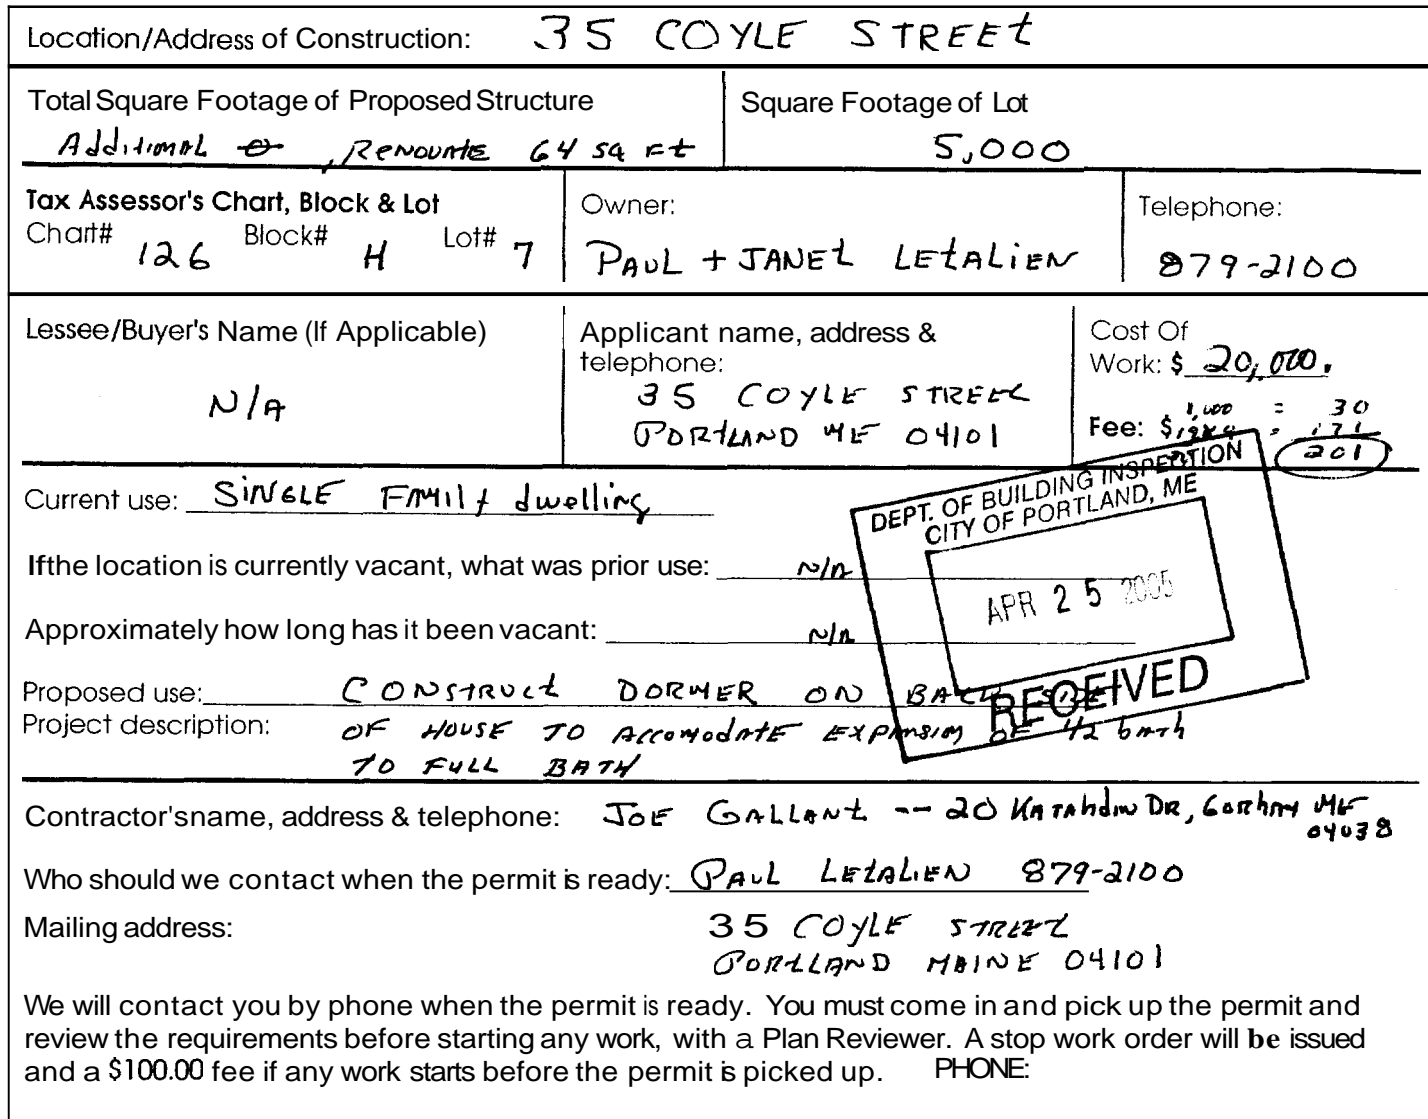 Location/Address of Construction: 35 COYLE STREET
Total Square Footage of Proposed Structure
Additional 0, RENOVATE 64 SQ FT
Square Footage of Lot
5,000
Tax Assessor's Chart, Block & Lot
Chart# 126 Block# H Lot# 7
Owner:
PAUL + JANET LETALIEN
Telephone:
879-2100
Lessee/Buyer's Name (If Applicable)
N/A
Applicant name, address &
telephone:
35 COYLE STREET
PORTLAND ME 04101
Cost Of
Work: $ 20,000.
1,000 = 30
Fee: $ = 171
201
Current use: SINGLE FAMILY dwelling
If the location is currently vacant, what was prior use: N/A
Approximately how long has it been vacant: N/A
DEPT. OF BUILDING INSPECTION
CITY OF PORTLAND, ME
APR 25 2005
RECEIVED
Proposed use: CONSTRUCT DORMER ON BACK SIDE
Project description: OF HOUSE TO ACCOMODATE EXPANSION OF 1/2 bath
TO FULL BATH
Contractor's name, address & telephone: JOE GALLANT -- 20 KATAHDIN DR, GORHAM ME
04038
Who should we contact when the permit is ready: PAUL LETALIEN 879-2100
Mailing address: 35 COYLE STREET
PORTLAND MAINE 04101
We will contact you by phone when the permit is ready. You must come in and pick up the permit and
review the requirements before starting any work, with a Plan Reviewer. A stop work order will be issued
and a $100.00 fee if any work starts before the permit is picked up. PHONE: